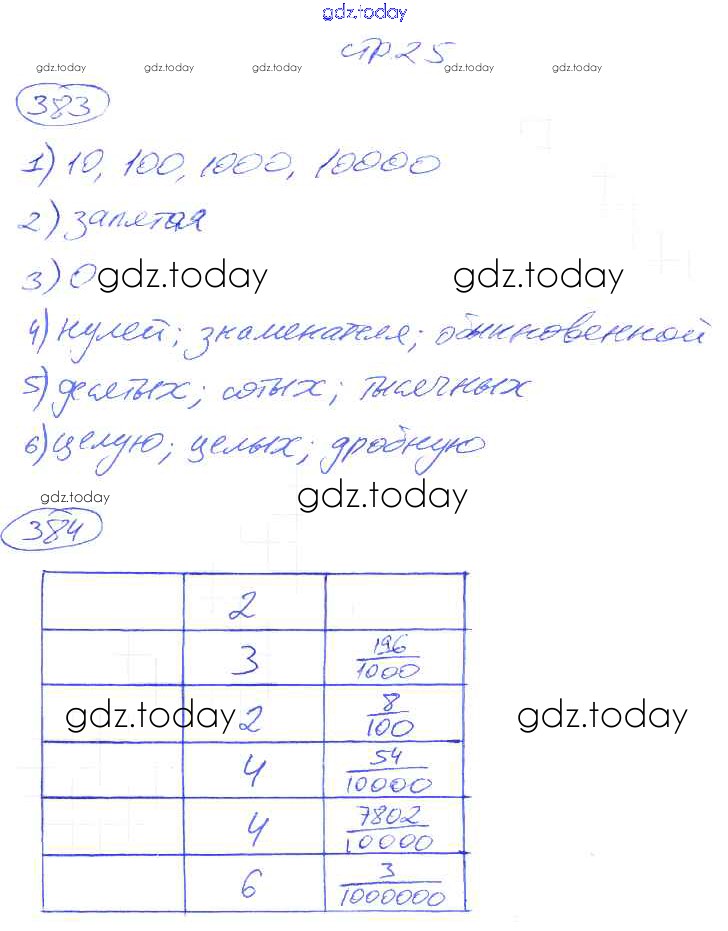 gdz.today
стр. 25
gdz.today gdz.today gdz.today gdz.today gdz.today
383
1) 10, 100, 1000, 10000
2) запятая
3) 0 gdz.today gdz.today
4) нулей; знаменателя; обыкновенной
5) десятых; сотых; тысячных
6) целую; целых; дробную
gdz.today gdz.today
384
2
3 196/1000
gdz.today 2 8/100 gdz.today
4 54/10000
4 7802/10000
6 3/1000000